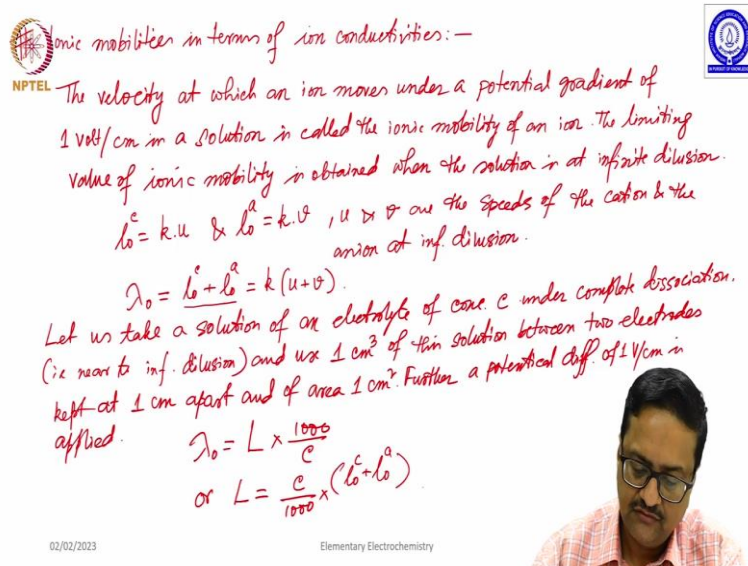 Ionic mobilities in terms of ion conductivities:—
NPTEL
The velocity at which an ion moves under a potential gradient of
1 volt/cm in a solution is called the ionic mobility of an ion. The limiting
value of ionic mobility is obtained when the solution is at infinite dilusion.
l₀ᶜ = k.u & l₀ᵃ = k.v , u & v are the speeds of the cation & the
anion at inf. dilusion.
λ₀ = l₀ᶜ + l₀ᵃ = k (u+v).
Let us take a solution of an electrolyte of conc. C under complete dissociation.
(ie near to inf. dilusion) and use 1 cm³ of this solution between two electrodes
kept at 1 cm apart and of area 1 cm². Further a potential diff. of 1 V/cm is
applied.
λ₀ = L × 1000/C
or L = C/1000 × (l₀ᶜ + l₀ᵃ)
02/02/2023
Elementary Electrochemistry